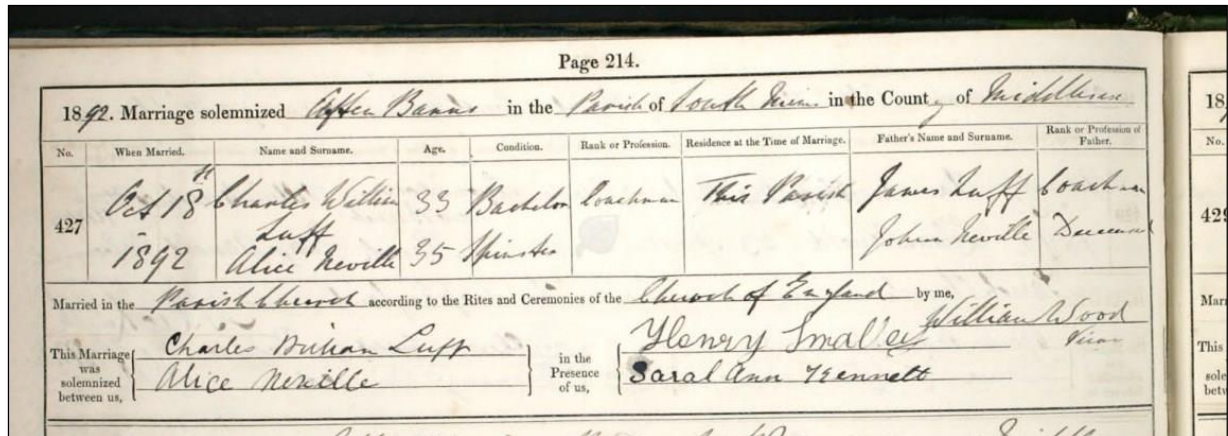 Page 214.
1892. Marriage solemnized after Banns in the Parish of South Mims in the County of Middlesex
No. When Married. Name and Surname. Age. Condition. Rank or Profession. Residence at the Time of Marriage. Father's Name and Surname. Rank or Profession of Father.
427 Oct 18th 1892 Charles William Luff 33 Bachelor Coachman This Parish James Luff Coachman
Alice Neville 35 Spinster John Neville Deceased
Married in the Parish Church according to the Rites and Ceremonies of the Church of England by me,
William Wood
Vicar
This Marriage was solemnized between us, Charles William Luff
Alice Neville
in the Presence of us, Henry
Sarah Ann Kennett
18
No.
429
Marr
This
sole
betw